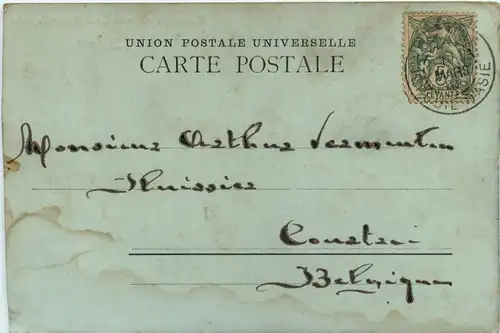 UNION POSTALE UNIVERSELLE
CARTE POSTALE
5
LEVANT
MARS
D'ASIE
Monsieur Arthur Vermeulen
Huissier
Courtrai
Belgique